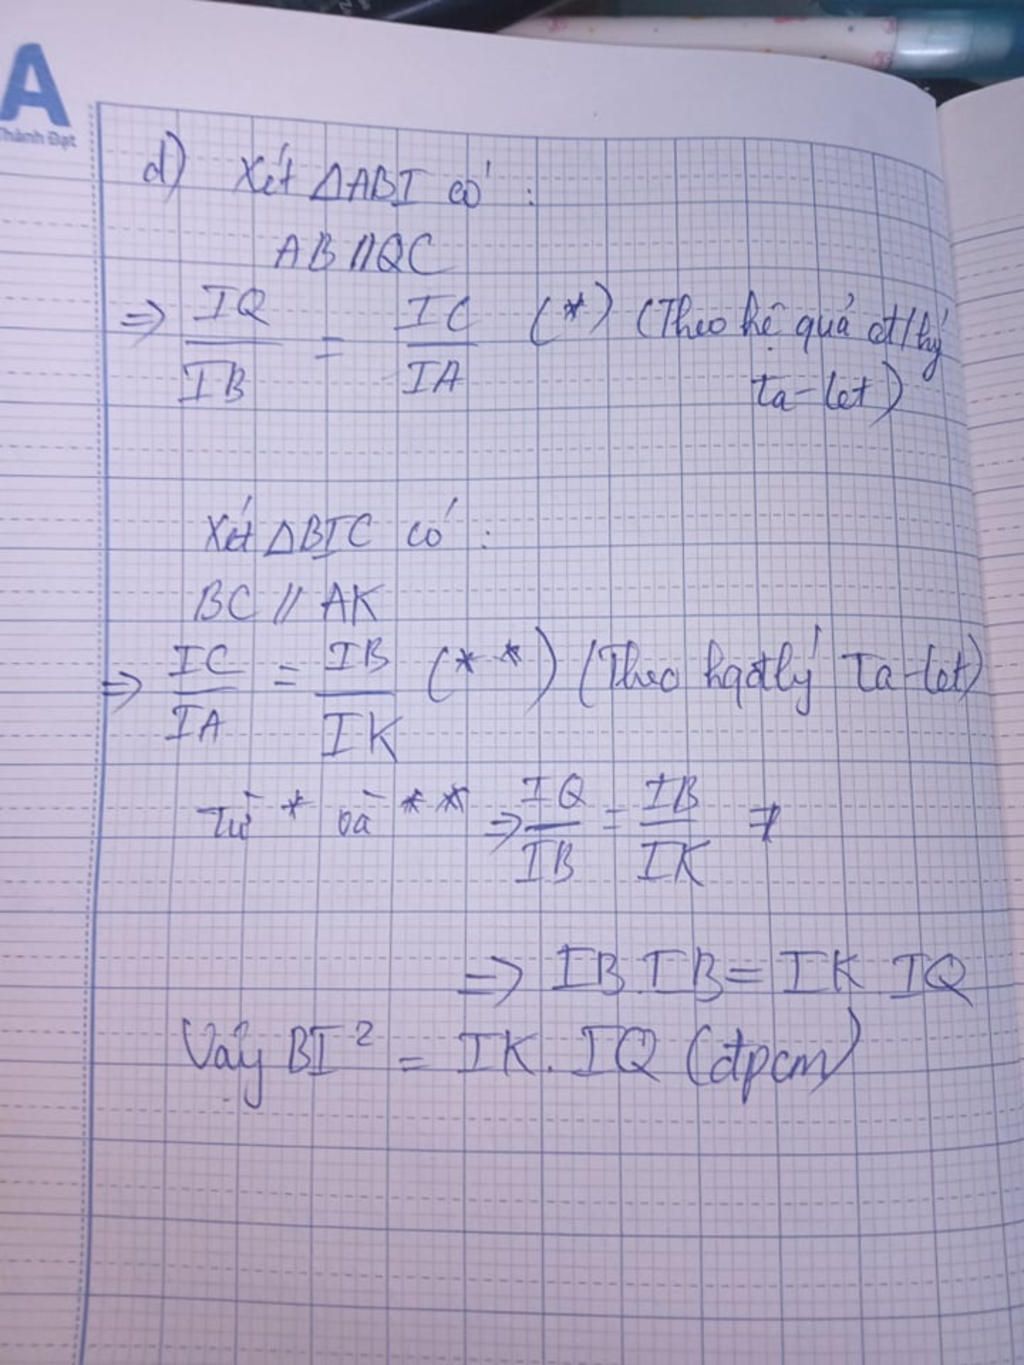 A
Thành Đạt
d) Xét △ABI có :
AB // QC
=> IQ/IB = IC/IA (*) (Theo hệ quả đ/lý
Ta-let)
Xét △BIC có :
BC // AK
=> IC/IA = IB/IK (**) (Theo hqđlý Ta-let)
Từ * và ** => IQ/IB = IB/IK
=> IB.IB = IK IQ
Vậy BI² = IK. IQ (đpcm)